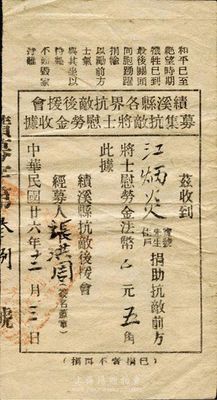 績溪縣各界抗敵後援會
募集抗敵將士慰勞金收據
和平已至
絕望時期
犧牲已到
最後關頭
同胞踴躍
捐輸
以勵前方
士氣
與其坐以
待斃
不如毀家
紓難
茲收到
江炳炎
寶號
先生
住戶
捐助抗敵前方
將士慰勞金法幣 元五角
此據
績溪縣抗敵後援會
經募人 張洪周(簽名蓋章)
中華民國廿六年十二月三日
(已捐當不再捐)